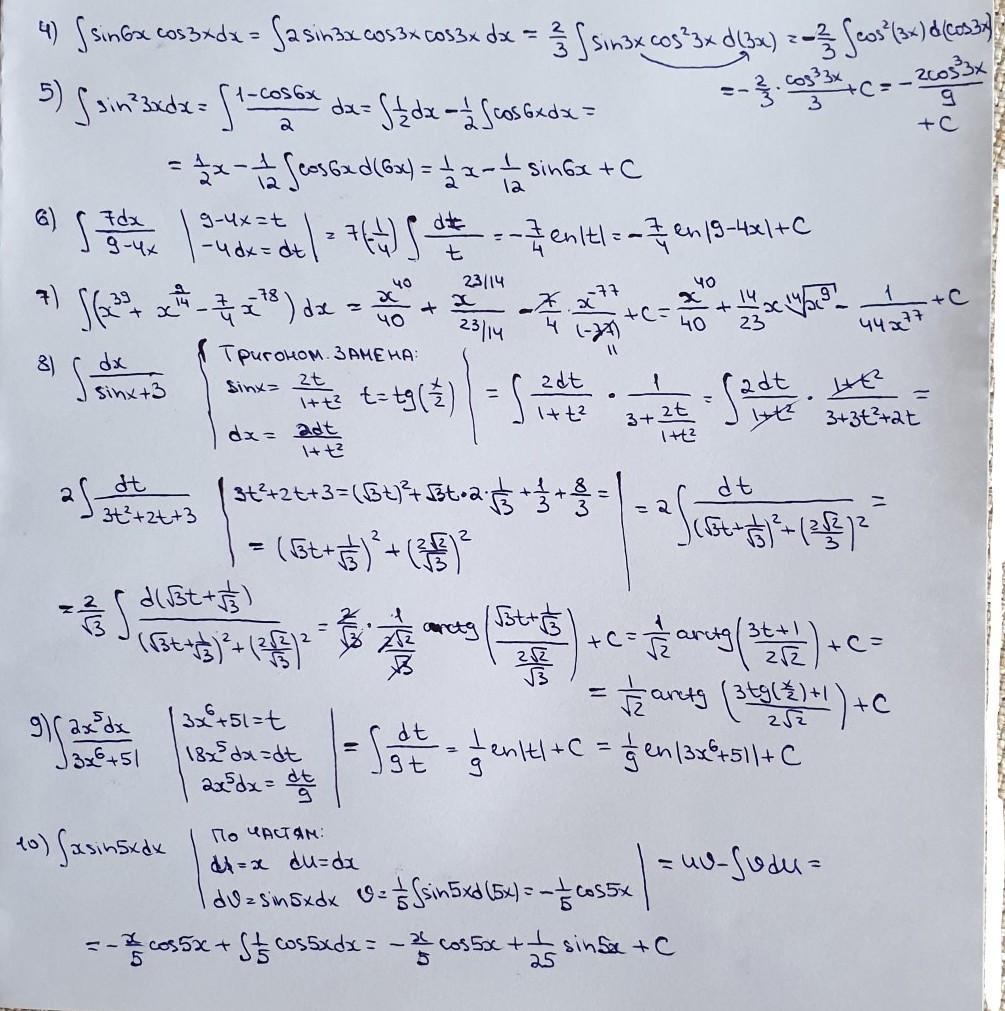 4) ∫sin6x cos3xdx = ∫2sin3x cos3x cos3x dx = 2/3 ∫sin3x cos²3x d(3x) = -2/3 ∫cos²(3x)d(cos3x)
= -2/3 · cos³3x/3 + C = -2cos³3x/9 + C
5) ∫sin²3xdx = ∫(1-cos6x)/2 dx = ∫1/2 dx - 1/2 ∫cos6xdx =
= 1/2 x - 1/12 ∫cos6xd(6x) = 1/2 x - 1/12 sin6x + C
6) ∫7dx/(9-4x) | 9-4x=t
-4dx=dt | = 7(-1/4) ∫dt/t = -7/4 ln|t| = -7/4 ln|9-4x| + C
7) ∫(x³⁹ + x^(9/14) - 7/4 x^(-78)) dx = x⁴⁰/40 + x^(23/14)/(23/14) - 7/4 · x^(-77)/(-77) + C = x⁴⁰/40 + 14/23 x ¹⁴√x⁹ - 1/(44x⁷⁷) + C
11
8) ∫dx/(sinx+3) | Тригоном. ЗАМЕНА:
sinx = 2t/(1+t²) t=tg(x/2)
dx = 2dt/(1+t²) | = ∫2dt/(1+t²) · 1/(3+2t/(1+t²)) = ∫2dt/(1+t²) · (1+t²)/(3+3t²+2t) =
2∫dt/(3t²+2t+3) | 3t²+2t+3 = (√3t)² + √3t·2·1/√3 + 1/3 + 8/3 =
= (√3t+1/√3)² + (2√2/√3)² | = 2∫dt/((√3t+1/√3)² + (2√2/3)²) =
= 2/√3 ∫d(√3t+1/√3)/((√3t+1/√3)² + (2√2/√3)²) = 2/√3 · 1/(2√2/√3) arctg((√3t+1/√3)/(2√2/√3)) + C = 1/√2 arctg((3t+1)/(2√2)) + C =
= 1/√2 arctg((3tg(x/2)+1)/(2√2)) + C
9) ∫2x⁵dx/(3x⁶+51) | 3x⁶+51=t
18x⁵dx=dt
2x⁵dx = dt/9 | = ∫dt/(9t) = 1/9 ln|t| + C = 1/9 ln|3x⁶+51| + C
10) ∫xsin5xdx | ПО ЧАСТЯМ:
u=x du=dx
dv=sin5xdx v = 1/5 ∫sin5xd(5x) = -1/5 cos5x | = uv - ∫vdu =
= -x/5 cos5x + ∫1/5 cos5xdx = -x/5 cos5x + 1/25 sin5x + C